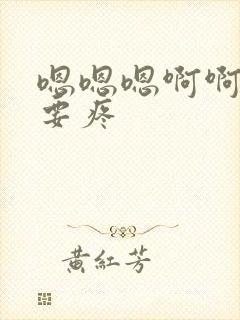 嗯嗯嗯啊啊
要疼
黄红芳